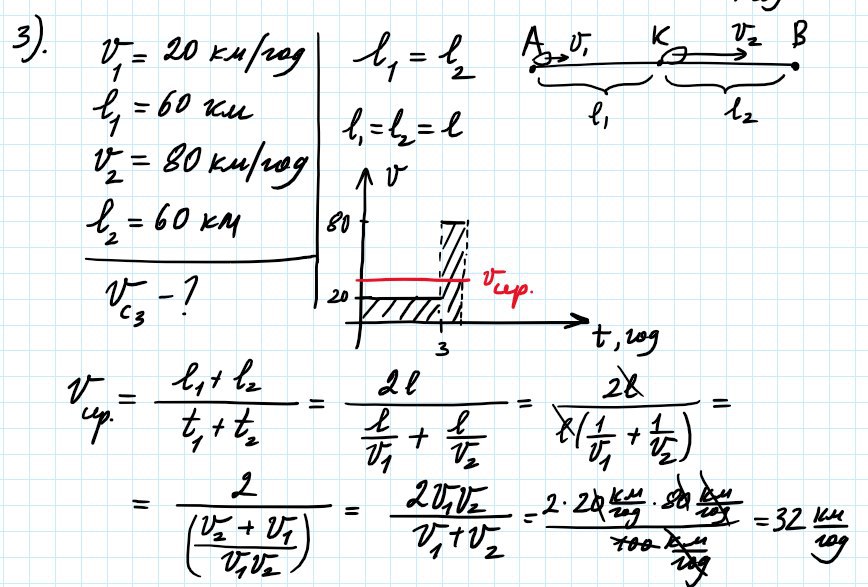 3).
v₁ = 20 км/год
l₁ = 60 км
v₂ = 80 км/год
l₂ = 60 км
v_c₃ - ?
l₁ = l₂
l₁ = l₂ = l
A v₁ K v₂ B
l₁ l₂
v
80
20
v_сер.
3
t, год
v_сер. = (l₁ + l₂)/(t₁ + t₂) = 2l/(l/v₁ + l/v₂) = 2l/(l(1/v₁ + 1/v₂)) =
= 2/((v₂ + v₁)/(v₁v₂)) = 2v₁v₂/(v₁ + v₂) = (2 · 20 км/год · 80 км/год)/(100 км/год) = 32 км/год